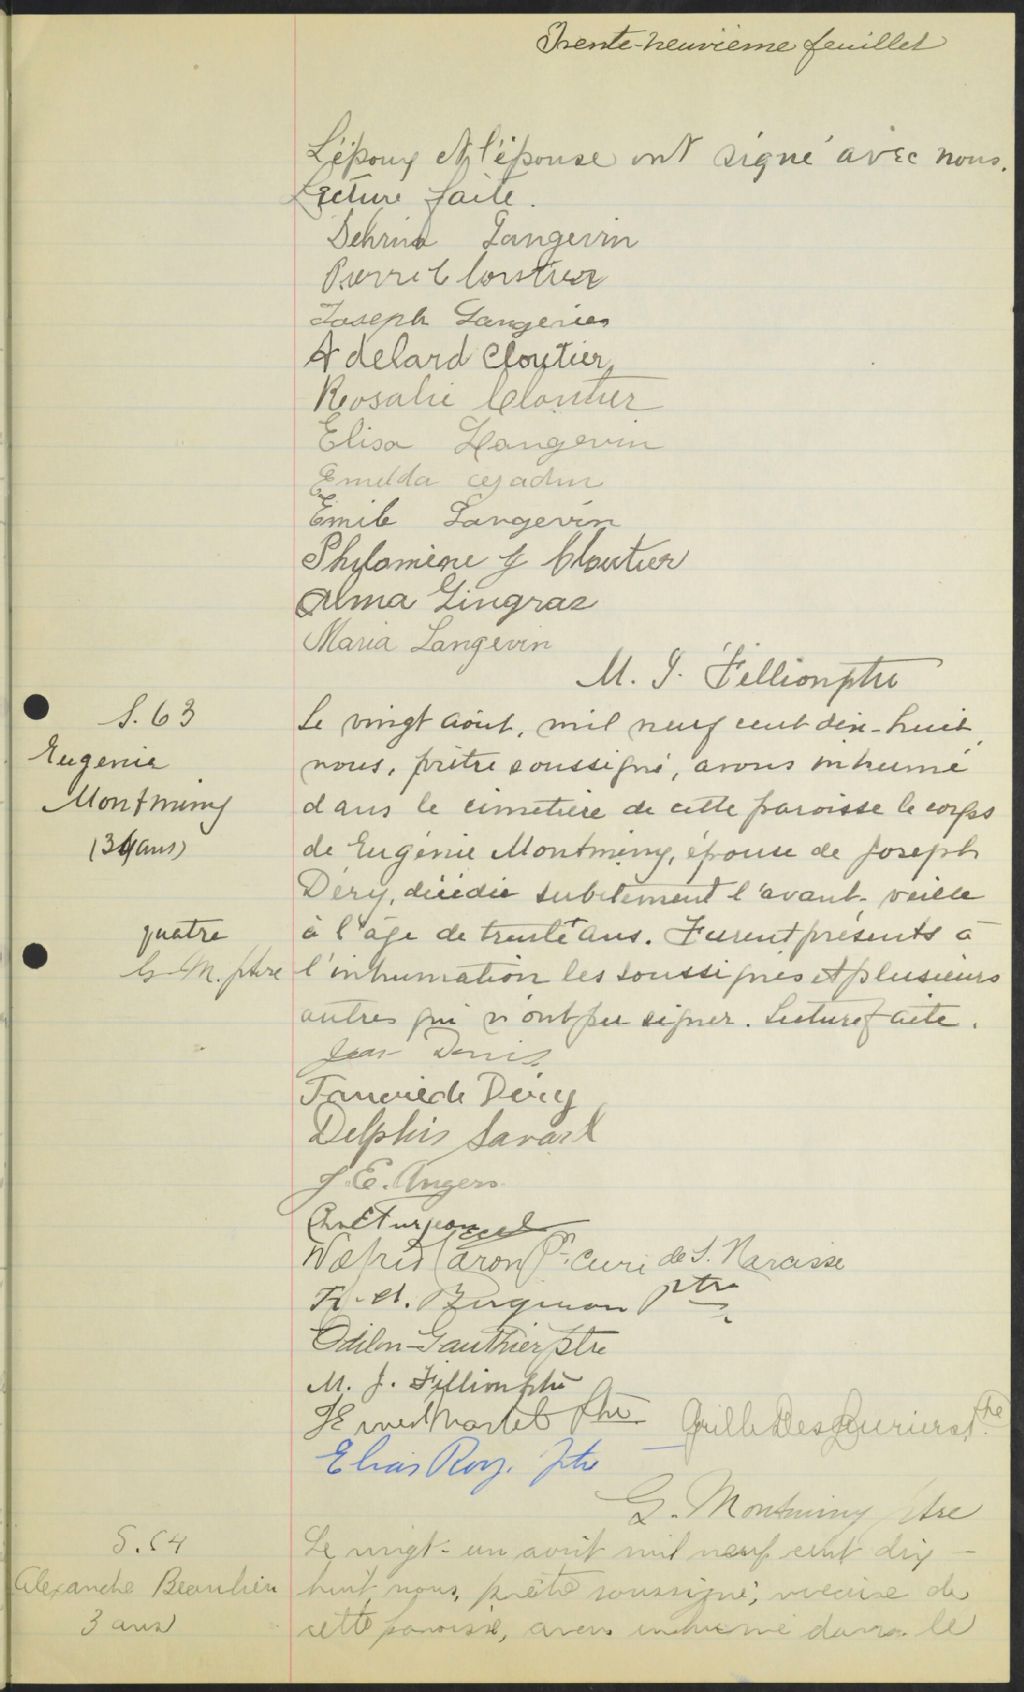 Trente-neuvième feuillet
L'époux et l'épouse ont signé avec nous.
Lecture faite.
Langevin
Pierre Cloutier
Joseph Langevin
Adelard Cloutier
Rosalie Cloutier
Elisa Langevin
Emelda
Emile Langevin
Philomène J Cloutier
Alma Gingras
Maria Langevin
M. J. Fillion ptre
S. 63
Eugénie
Montminy
(34 ans)
Le vingt août, mil neuf cent dix-huit,
nous, prêtre soussigné, avons inhumé
dans le cimetière de cette paroisse le corps
de Eugénie Montminy, épouse de Joseph
Déry, décédée subitement l'avant-veille
à l'âge de trente ans. Furent présents à
quatre
G. M. ptre
l'inhumation les soussignés et plusieurs
autres qui n'ont pu signer. Lecture faite.
Jean Denis
Déry
Delphis Savard
J. E. Angers
Turgeon
Wilfrid Caron Ptr. Curé de S. Narcisse
ptre
Odilon Gauthier ptre
M. J. Fillion ptre
Martel Ptre
Elias Roy. ptre
G. Montminy ptre
S. 64
Alexandre Beaulieu
3 ans
Le vingt-un août mil neuf cent dix-
huit, nous, prêtre soussigné, vicaire de
cette paroisse, avons inhumé dans le